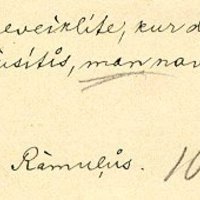 eveiklite, kur d
usitis, man nav
Rāmuļůs. 10